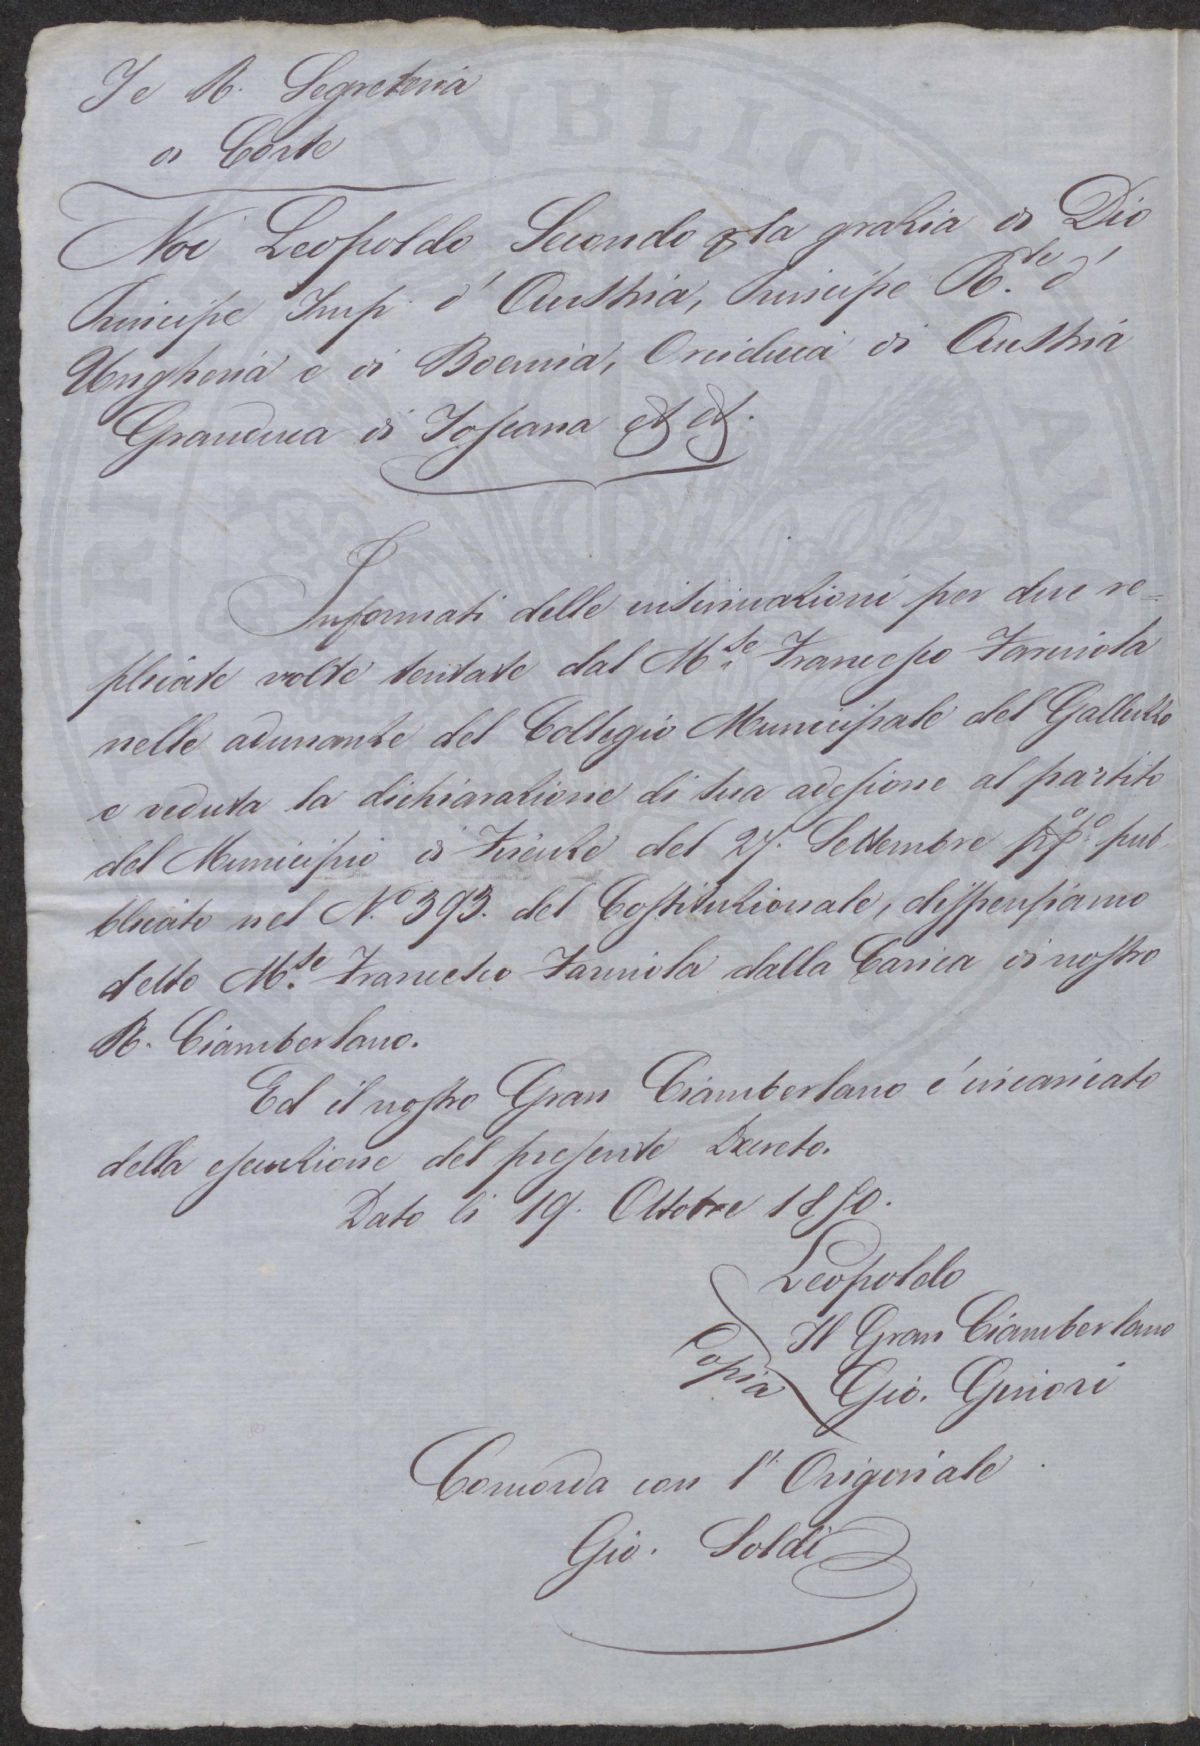 I e R. Segreteria
di Corte
Noi Leopoldo Secondo p la grazia di Dio
Principe Imp. d' Austria, Principe R.le d'
Ungheria e di Boemia, Arciduca di Austria
Granduca di Toscana et et.
Informati delle insinuazioni per due re=
plicate volte tentate dal M.se Francesco Farinola
nelle adunanze del Collegio Municipale del Galluzzo
e veduta la dichiarazione di sua adesione al partito
del Municipio di Firenze del 27. Settembre pub
blicato nel N.o 393. del Costituzionale, dispensiamo
detto M.se Francesco Farinola dalla Carica di nostro
R. Ciamberlano.
Ed il nostro Gran Ciamberlano é incaricato
della esecuzione del presente Decreto.
Dato li 19. Ottobre 1850.
Leopoldo
Il Gran Ciamberlano
Copia Gio. Ginori
Concorda con l' Originale
Gio. Soldi
PVBLICA